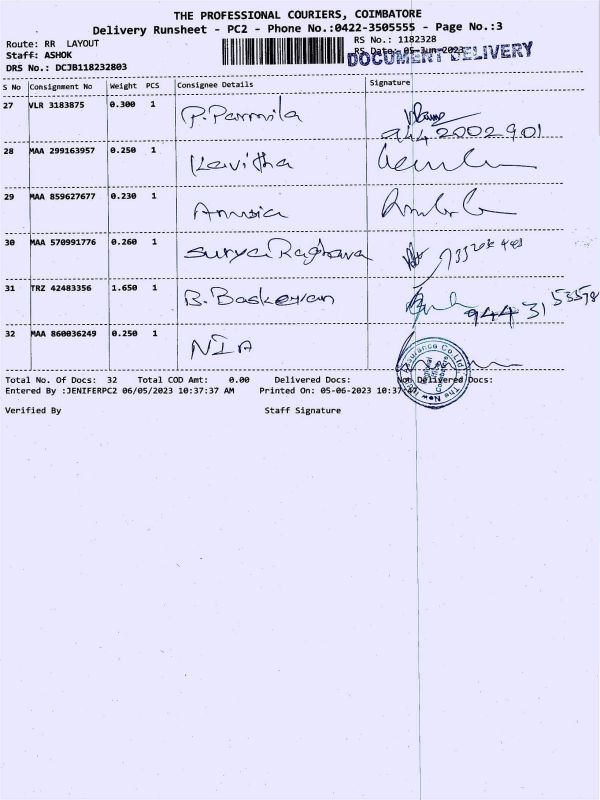 THE PROFESSIONAL COURIERS, COIMBATORE
Delivery Runsheet - PC2 - Phone No.:0422-3505555 - Page No.:3
Route: RR LAYOUT
RS No.: 1182328
Staff: ASHOK
RS Date: 05-Jun-2023
DOCUMENT DELIVERY
DRS No.: DCJB118232803
S No Consignment No Weight PCS Consignee Details Signature
27 VLR 3183875 0.300 1 P. Parmila
9442002901
28 MAA 299163957 0.250 1 Kavitha
29 MAA 859627677 0.230 1 Anusia
30 MAA 570991776 0.260 1 Surya Raghava
31 TRZ 42483356 1.650 1 B. Baskeran
944 31 53578
32 MAA 860036249 0.250 1 NIA
Total No. Of Docs: 32 Total COD Amt: 0.00 Delivered Docs: Non Delivered Docs:
Entered By :JENIFERPC2 06/05/2023 10:37:27 AM Printed On: 05-06-2023 10:37:47
Verified By Staff Signature